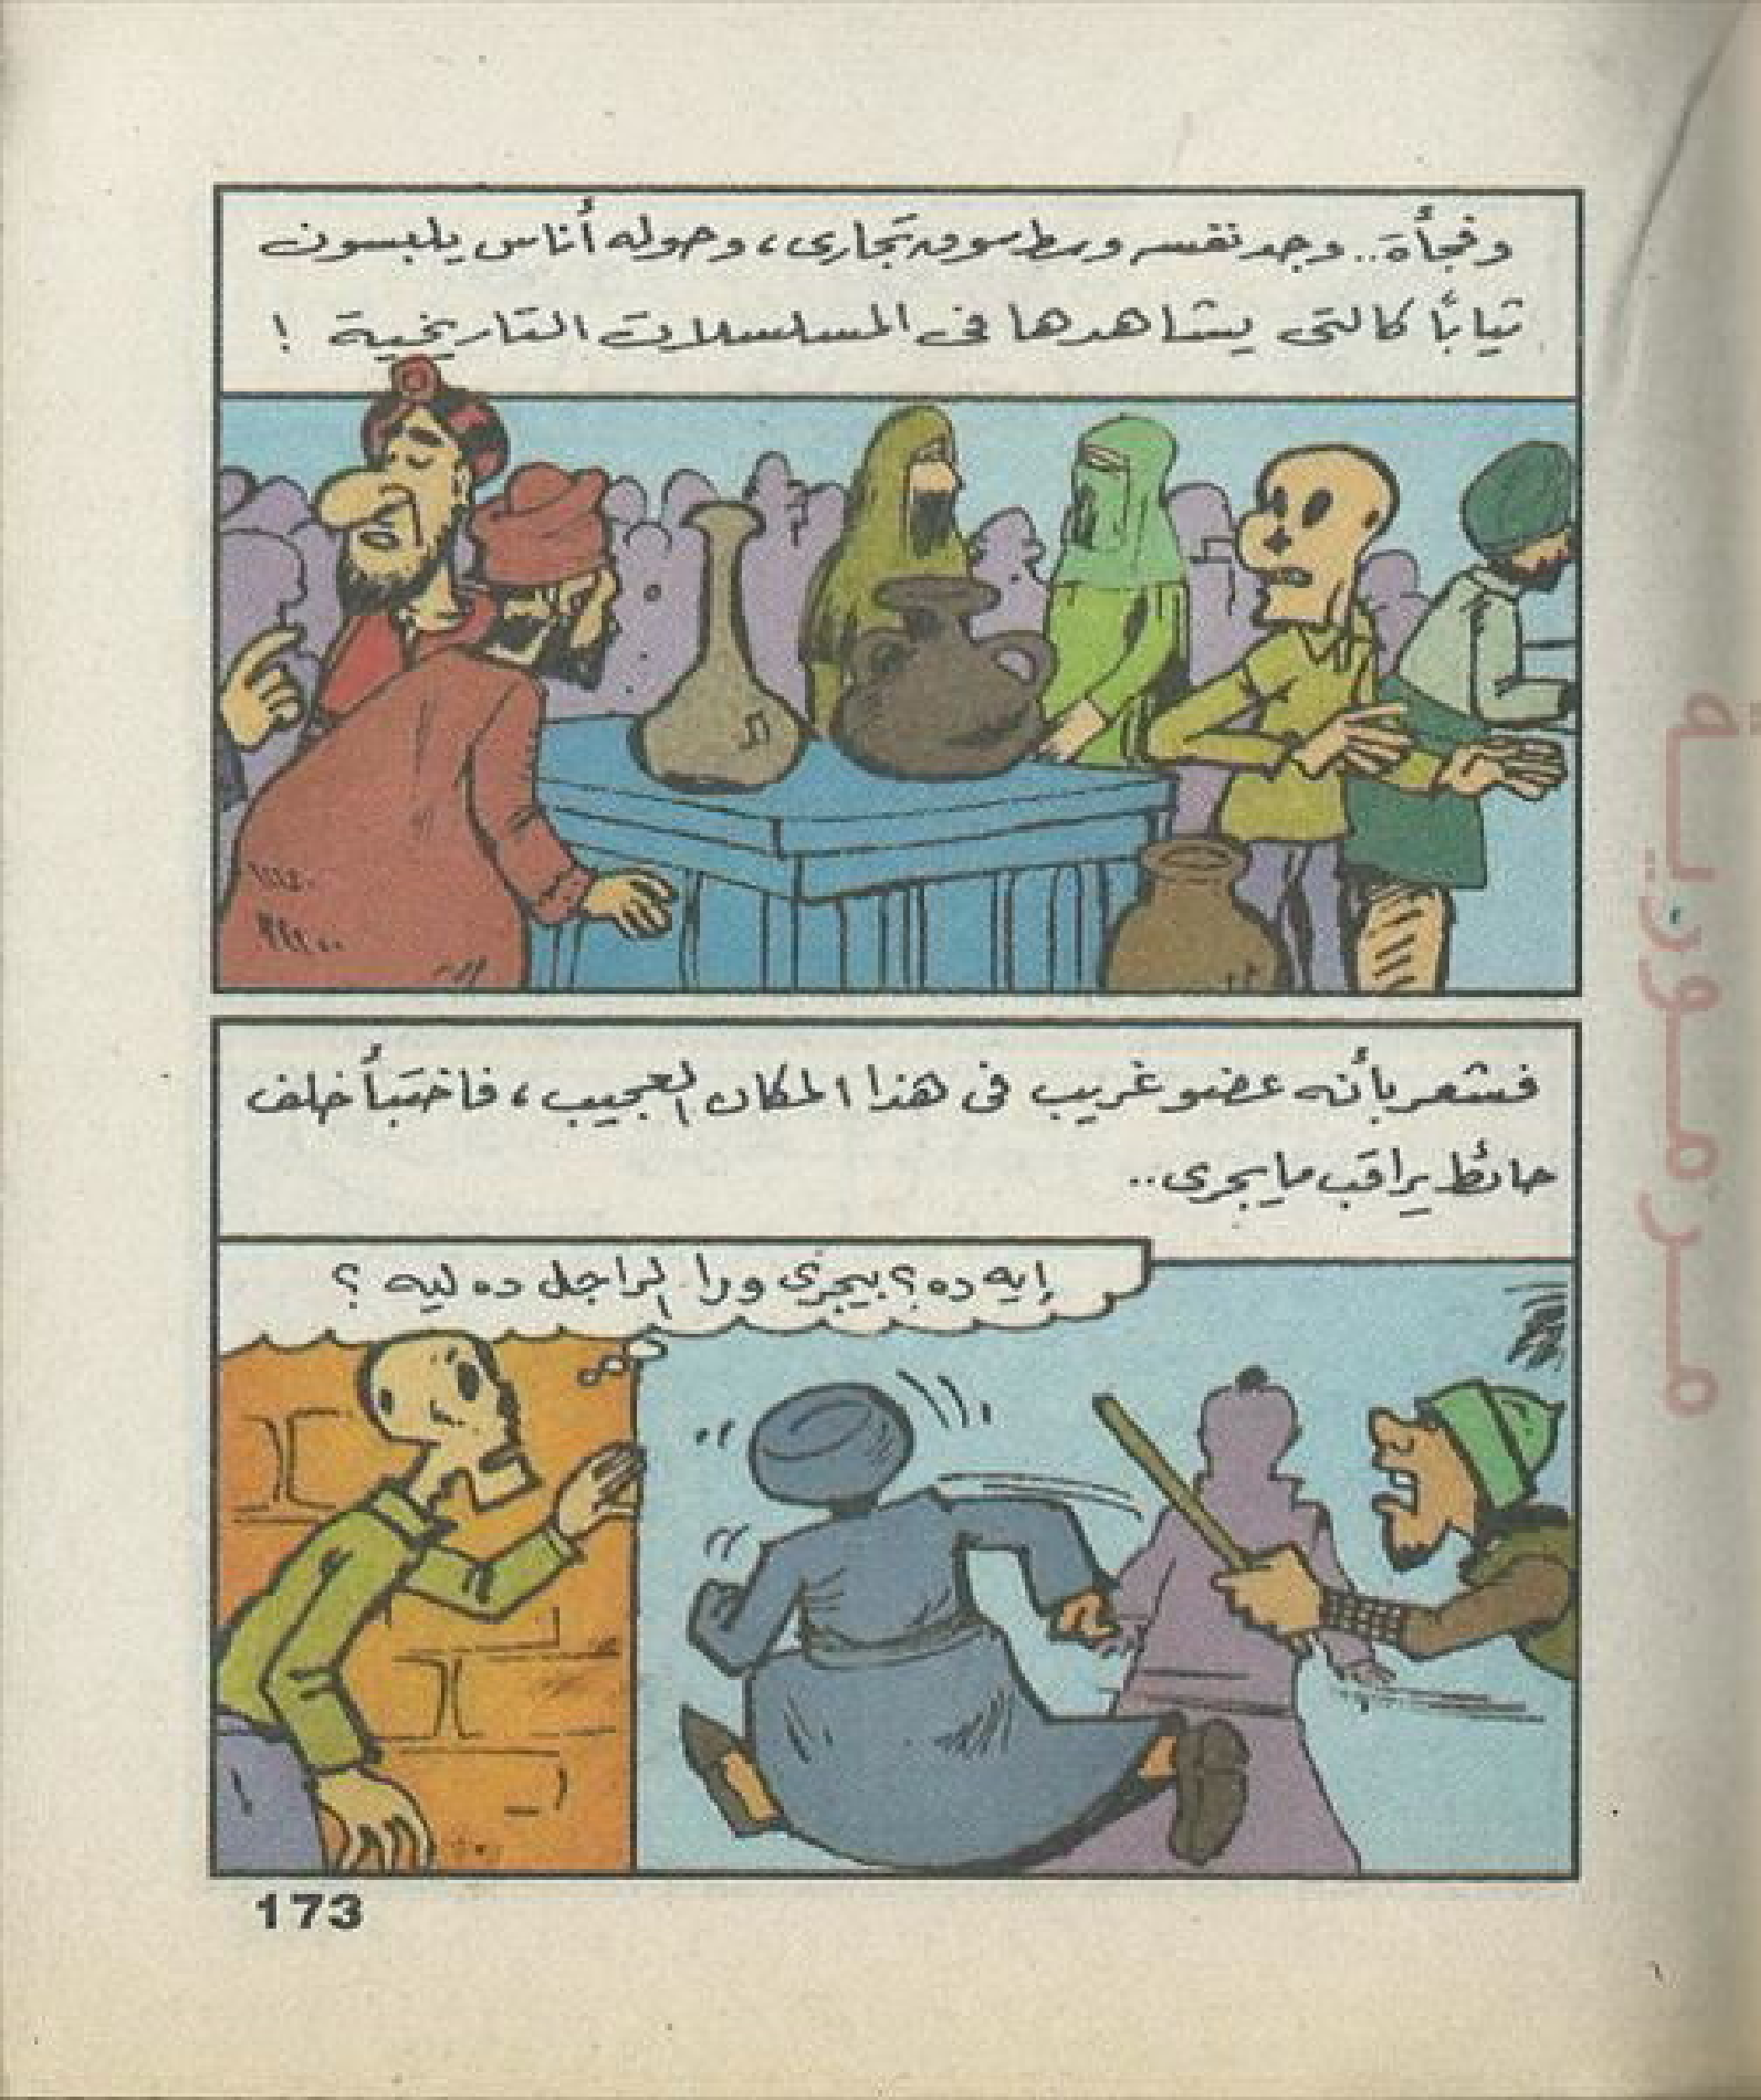 وفجأة.. وجد نفسه وسط سوق تجارى، وحوله أناس يلبسون
ثيابًا كالتى يشاهدها فى المسلسلات التاريخية !
فشعر بأنه عضو غريب فى هذا المكان العجيب، فاختبأ خلف
حائط يراقب ما يجرى..
إيه ده؟ بيجرى ورا الراجل ده ليه ؟
173